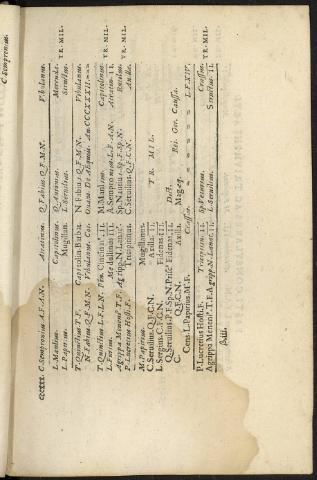 C Sempronius.
C.Sempronius A.F.A.N. Atratinus. Q.Fabius.Q.F.M.N. Vibulanus.
L.Manlius. Capitolinus. Q. Merenda. TR. MIL.
L.Papirius. Mugillan. L.Servilius. Structus.
T.Quinctius T.F. Capitolin Barbat. N.Fabius.Q.F.M.N. Vibulanus.
N.Fabius.Q.F.M.N. Vibulanus. Cos. Ovans De Aequeis. An.
T.Quinctius.L.F.L.N. Pen. Cincinat. II. M.Manlius. Capitolinus. TR. MIL.
L.Furius. Medullinus III A.Sempronius.L.F.A.N. Atratin. II
Agrippa Menen. T.F. Agripp.N.Lanat. Sp.Nautius.Sp.F.Sp.N. Rutilus. TR. MIL.
P.Lucretius Hosti.F. Tricipitinus. C.Servilius.Q.F.C.N. Axilla.
M.Papirius. Mugillanus.
C.Servilius.Q.F.C.N. Axilla. II. TR. MIL.
L.Sergius.C.F.C.N. Fidenas. III.
Q.Servilius.P.F.Sp.N.Prisc. Fidenas. II. Dict.
C. Q.F.C.N. Axilla. Mag.eq. Rei. Ger. Caussa.
Cens. L.Papirius. M.F. L.F.XIV.
P.Lucretius Hosti.F. Tricipitin. II. Sp.Veturius. Crassus. TR. MIL.
Agrippa Menen. T.F.Agripp.N.Lanat. II. L.Servilius. Structus. II.
Bellis.